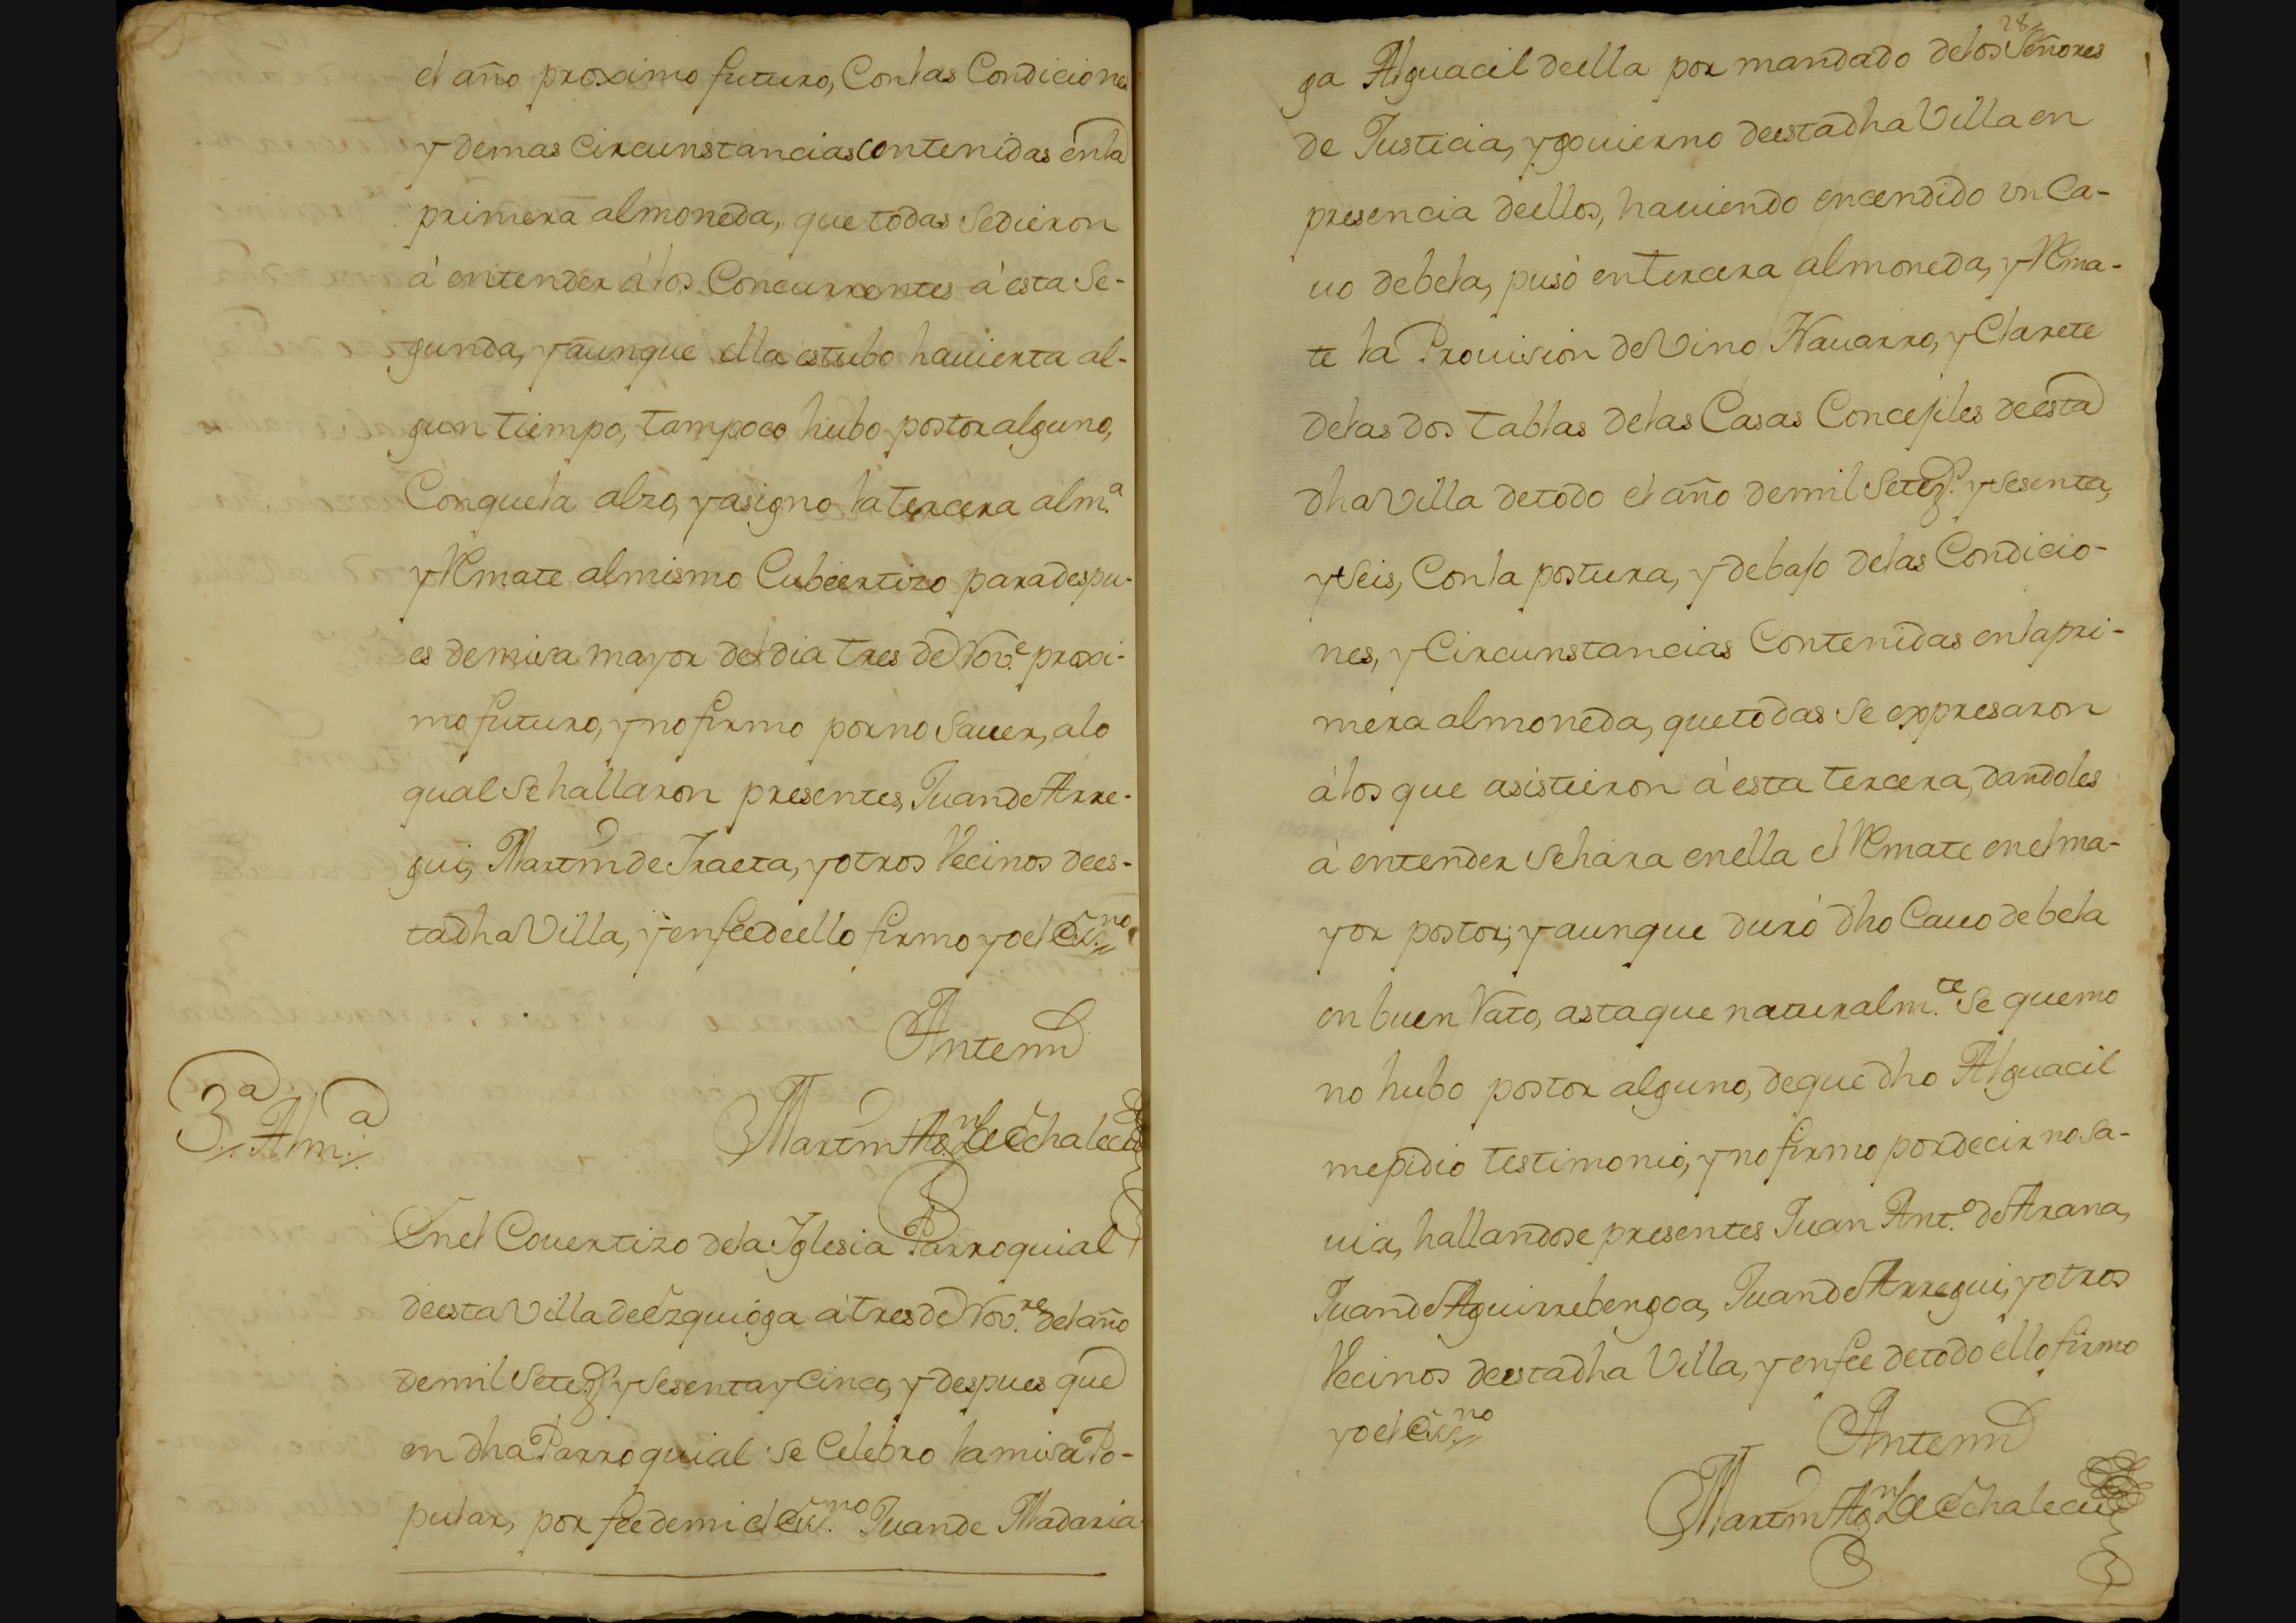 el año proximo futuro, Con las Condicione
y demas circunstancias contenidas en la
primera almoneda, que todas se dieron
á entender á los Concurrentes á esta Se-
gunda, y aunque ella estubo havierta al-
gun tiempo, tampoco hubo postor alguno,
Conque la alzo, y asigno la tercera alm.ª
y Remate al mismo Cubiertizo para despu-
es de misa mayor del dia tres de Nov.e proxi-
mo futuro, y no firmo por no Saver, a lo
qual se hallaron presentes, Juan de Arre-
gui, Martin de Iraeta, y otros Vecinos de es-
ta dha Villa, y en fee de ello firmo yo el Es.no
Antemi
Martin Ag.n de Echalecu
3.ª Alm.ª
En el Covertizo de la Iglesia Parroquial
de esta Villa de Ezquioga á tres de Nov.re del año
de mil Setez.s y Sesenta y Cinco, y despues que
en dha Parroquial se Celebro la misa Po-
pular, por fee de mi el Es.no Juan de Madaria
28
ga Alguacil de ella por mandado de los Señores
de Justicia, y govierno de esta dha Villa en
presencia de ellos, haviendo encendido un Ca-
vo de bela, pusó en tercera almoneda, y Rema-
te la Provision de Vino Navarro, y Clarete
de las dos tablas de las Casas Concejiles de esta
dha Villa de todo el año de mil Setez.s y Sesenta,
y Seis, Con la postura, y debajo de las Condicio-
nes, y Circunstancias Contenidas en la pri-
mera almoneda, que todas se expresaron
á los que asistieron á esta tercera, dandoles
á entender se hara en ella el Remate en el ma-
yor postor; y aunque duró dho Cavo de bela
un buen Rato, asta que naturalm.te se quemo
no hubo postor alguno, de que dho Alguacil
me pidio testimonio, y no firmo por decir no sa-
via, hallandose presentes Juan Ant.o de Arana,
Juan de Aguirrebengoa, Juan de Arregui, y otros
Vecinos de esta dha Villa, y en fee de todo ello firmo
yo el Es.no
Antemi
Martin Ag.n de Echalecu